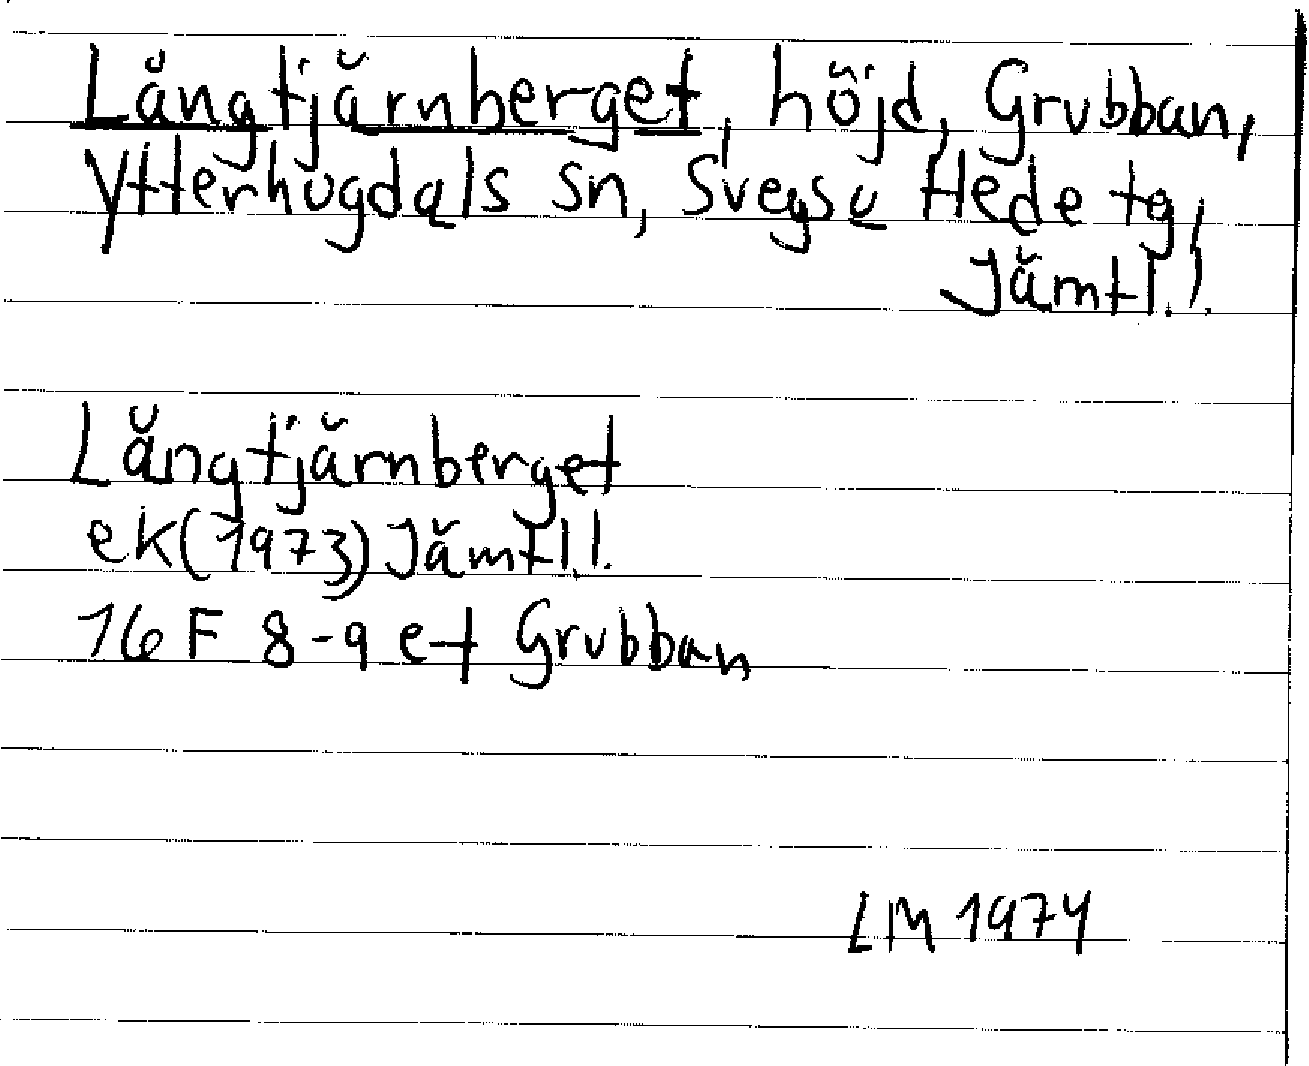 Långtjärnberget, höjd, Grubban,
Ytterhogdals sn, Svegs o Hede tg,
Jämtl. l.
Långtjärnberget
ek (1973) Jämtl. l.
16 F 8-9 e-f Grubban
LM 1974